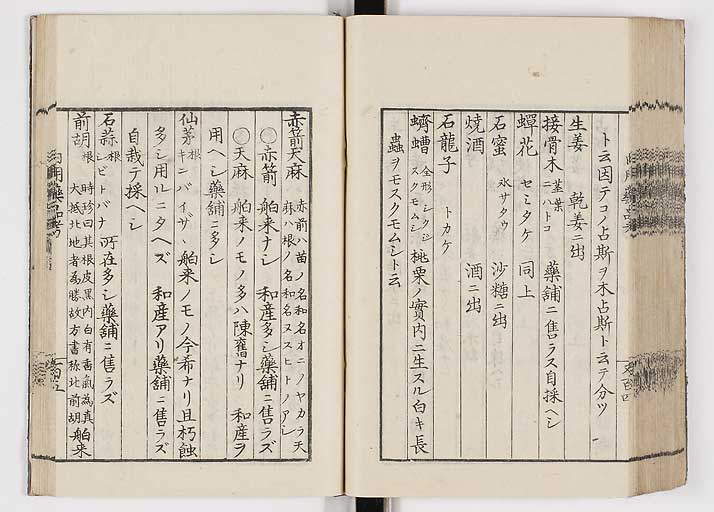 ト云因テコノ占斯ヲ木占斯ト云テ分ツ
生姜 乾姜ニ出
接骨木 茎葉ニハトコ 藥舗ニ售ラス自採ヘシ
蟬花 セミタケ 同上
石蜜 氷サタウ 沙糖ニ出
燒酒 酒ニ出
石龍子 トカケ
蠐螬 全形シクジ スクモムシ 桃栗ノ實内ニ生スル白キ長
蟲ヲモスクモムシト云
赤箭天麻 赤箭ハ苗ノ名和名オニノヤカラ天麻ハ根ノ名和名ヌスヒトノアシ
赤箭 舶来ナシ 和産多シ藥舗ニ售ラズ
天麻 舶来ノモノ多ハ陳舊ナリ 和産ヲ
用ヘシ藥舗ニ多シ
仙茅 根 キンバイザヽ 舶来ノモノ今希ナリ且朽蝕
多シ用ルニタヘズ 和産アリ藥舗ニ售ラズ
自栽テ採ヘシ
石蒜 根 シビトバナ 所在多シ藥舗ニ售ラズ
前胡 根 時珍曰其根皮黒内白有香氣為真大抵北地者為勝故方書称北前胡 舶来
用藥品考